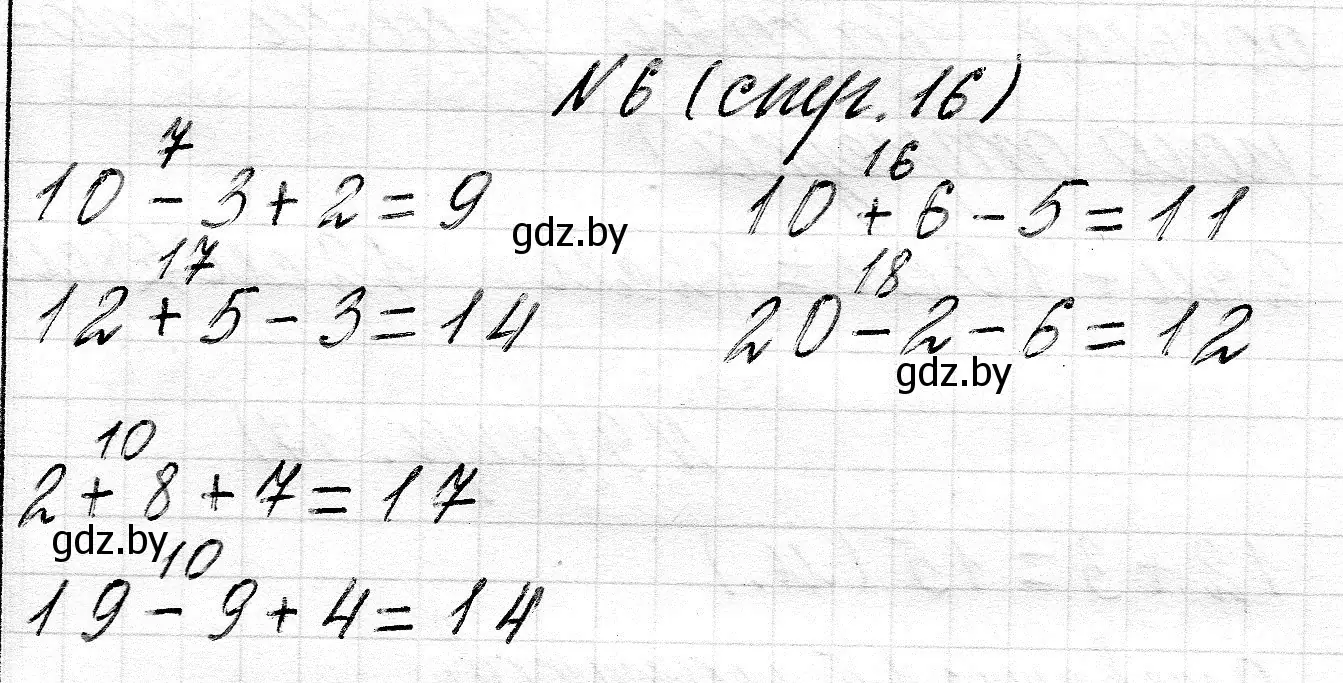 №6 (стр. 16)
7
10 - 3 + 2 = 9
16
10 + 6 - 5 = 11
gdz.by
17
12 + 5 - 3 = 14
18
20 - 2 - 6 = 12
gdz.by
10
2 + 8 + 7 = 17
gdz.by
10
19 - 9 + 4 = 14